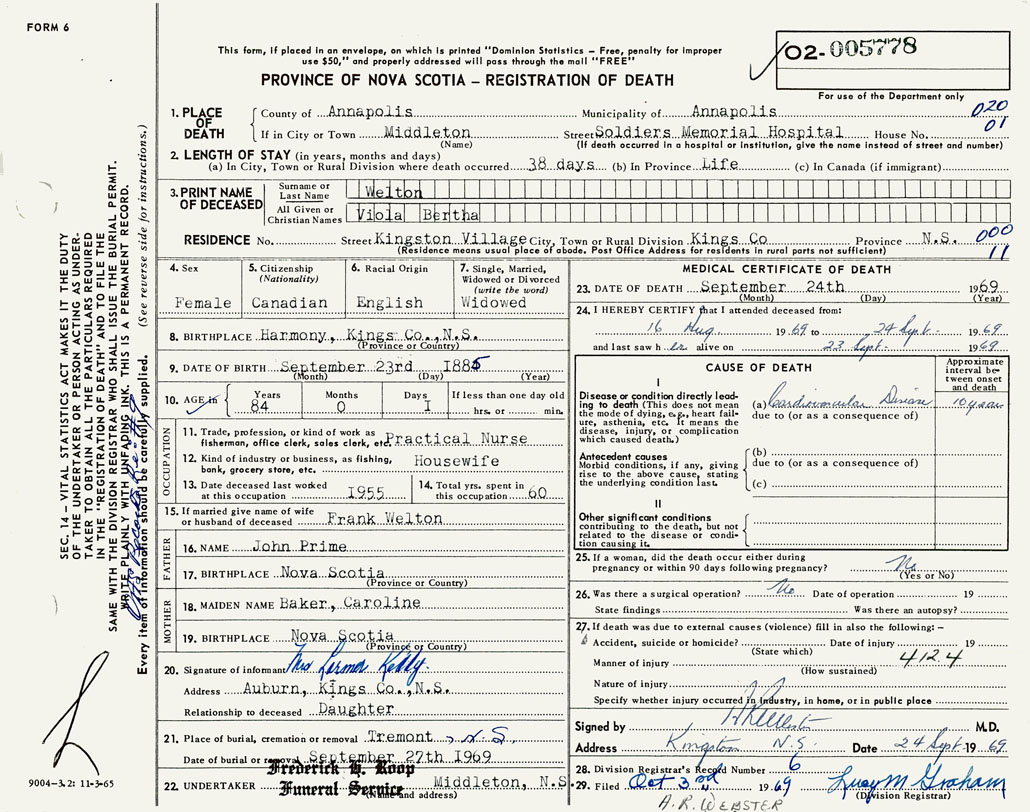 FORM 6
This form, if placed in an envelope, on which is printed "Dominion Statistics – Free, penalty for improper
use $50," and properly addressed will pass through the mail "FREE"
O2-005778
PROVINCE OF NOVA SCOTIA – REGISTRATION OF DEATH
For use of the Department only
1. PLACE OF DEATH
County of Annapolis Municipality of Annapolis 020
If in City or Town Middleton Street Soldiers Memorial Hospital House No. 01
(Name) (If death occurred in a hospital or institution, give the name instead of street and number)
2. LENGTH OF STAY (in years, months and days)
(a) In City, Town or Rural Division where death occurred 38 days (b) In Province Life (c) In Canada (if immigrant)
3. PRINT NAME OF DECEASED
Surname or Last Name Welton
All Given or Christian Names Viola Bertha
RESIDENCE No. Street Kingston Village City, Town or Rural Division Kings Co Province N.S. 000
(Residence means usual place of abode. Post Office Address for residents in rural parts not sufficient) 11
4. Sex
Female
5. Citizenship
(Nationality)
Canadian
6. Racial Origin
English
7. Single, Married,
Widowed or Divorced
(write the word)
Widowed
8. BIRTHPLACE Harmony, Kings Co., N.S.
(Province or Country)
9. DATE OF BIRTH September 23rd 1885
(Month) (Day) (Year)
10. AGE in Years 84 Months 0 Days 1 If less than one day old
hrs. or min.
OCCUPATION
11. Trade, profession, or kind of work as
fisherman, office clerk, sales clerk, etc. Practical Nurse
12. Kind of industry or business, as fishing,
bank, grocery store, etc. Housewife
13. Date deceased last worked
at this occupation 1955
14. Total yrs. spent in
this occupation 60
15. If married give name of wife
or husband of deceased Frank Welton
FATHER
16. NAME John Prime
17. BIRTHPLACE Nova Scotia
(Province or Country)
MOTHER
18. MAIDEN NAME Baker, Caroline
19. BIRTHPLACE Nova Scotia
(Province or Country)
20. Signature of informant Mrs
Address Auburn, Kings Co., N.S.
Relationship to deceased Daughter
21. Place of burial, cremation or removal Tremont N.S.
Date of burial or removal September 27th 1969
22. UNDERTAKER Frederick H. Roop
Funeral Service Middleton, N.S.
(Name and address)
MEDICAL CERTIFICATE OF DEATH
23. DATE OF DEATH September 24th 1969
(Month) (Day) (Year)
24. I HEREBY CERTIFY that I attended deceased from:
16 Aug 1969 to 24 Sept. 1969
and last saw her alive on 23 Sept. 1969
CAUSE OF DEATH
Approximate
interval between onset
and death
I
Disease or condition directly leading
to death (This does not mean
the mode of dying, e.g., heart failure,
asthenia, etc. It means the
disease, injury, or complication
which caused death.)
(a) Cardiovascular Disease 10 years
due to (or as a consequence of)
Antecedent causes
Morbid conditions, if any, giving
rise to the above cause, stating
the underlying condition last.
(b)
due to (or as a consequence of)
(c)
II
Other significant conditions
contributing to the death, but not
related to the disease or condition
causing it.
25. If a woman, did the death occur either during
pregnancy or within 90 days following pregnancy? No
(Yes or No)
26. Was there a surgical operation? No Date of operation 19
State findings Was there an autopsy?
27. If death was due to external causes (violence) fill in also the following: –
Accident, suicide or homicide? Date of injury 19
(State which)
Manner of injury 4124
(How sustained)
Nature of injury
Specify whether injury occurred in Industry, in home, or in public place
Signed by M.D.
Address Kingston N.S. Date 24 Sept. 1969
28. Division Registrar's Record Number 6
29. Filed Oct 3rd 1969 Lucy M Graham
(Division Registrar)
A.R. WEBSTER
SEC. 14 – VITAL STATISTICS ACT MAKES IT THE DUTY
OF THE UNDERTAKER OR PERSON ACTING AS UNDERTAKER
TO OBTAIN ALL THE PARTICULARS REQUIRED
IN THE "REGISTRATION OF DEATH" AND TO FILE THE
SAME WITH THE DIVISION REGISTRAR WHO SHALL ISSUE THE BURIAL PERMIT.
WRITE PLAINLY WITH UNFADING INK. THIS IS A PERMANENT RECORD.
Every item of information should be carefully supplied. (See reverse side for instructions.)
9004-3.2: 11-3-65